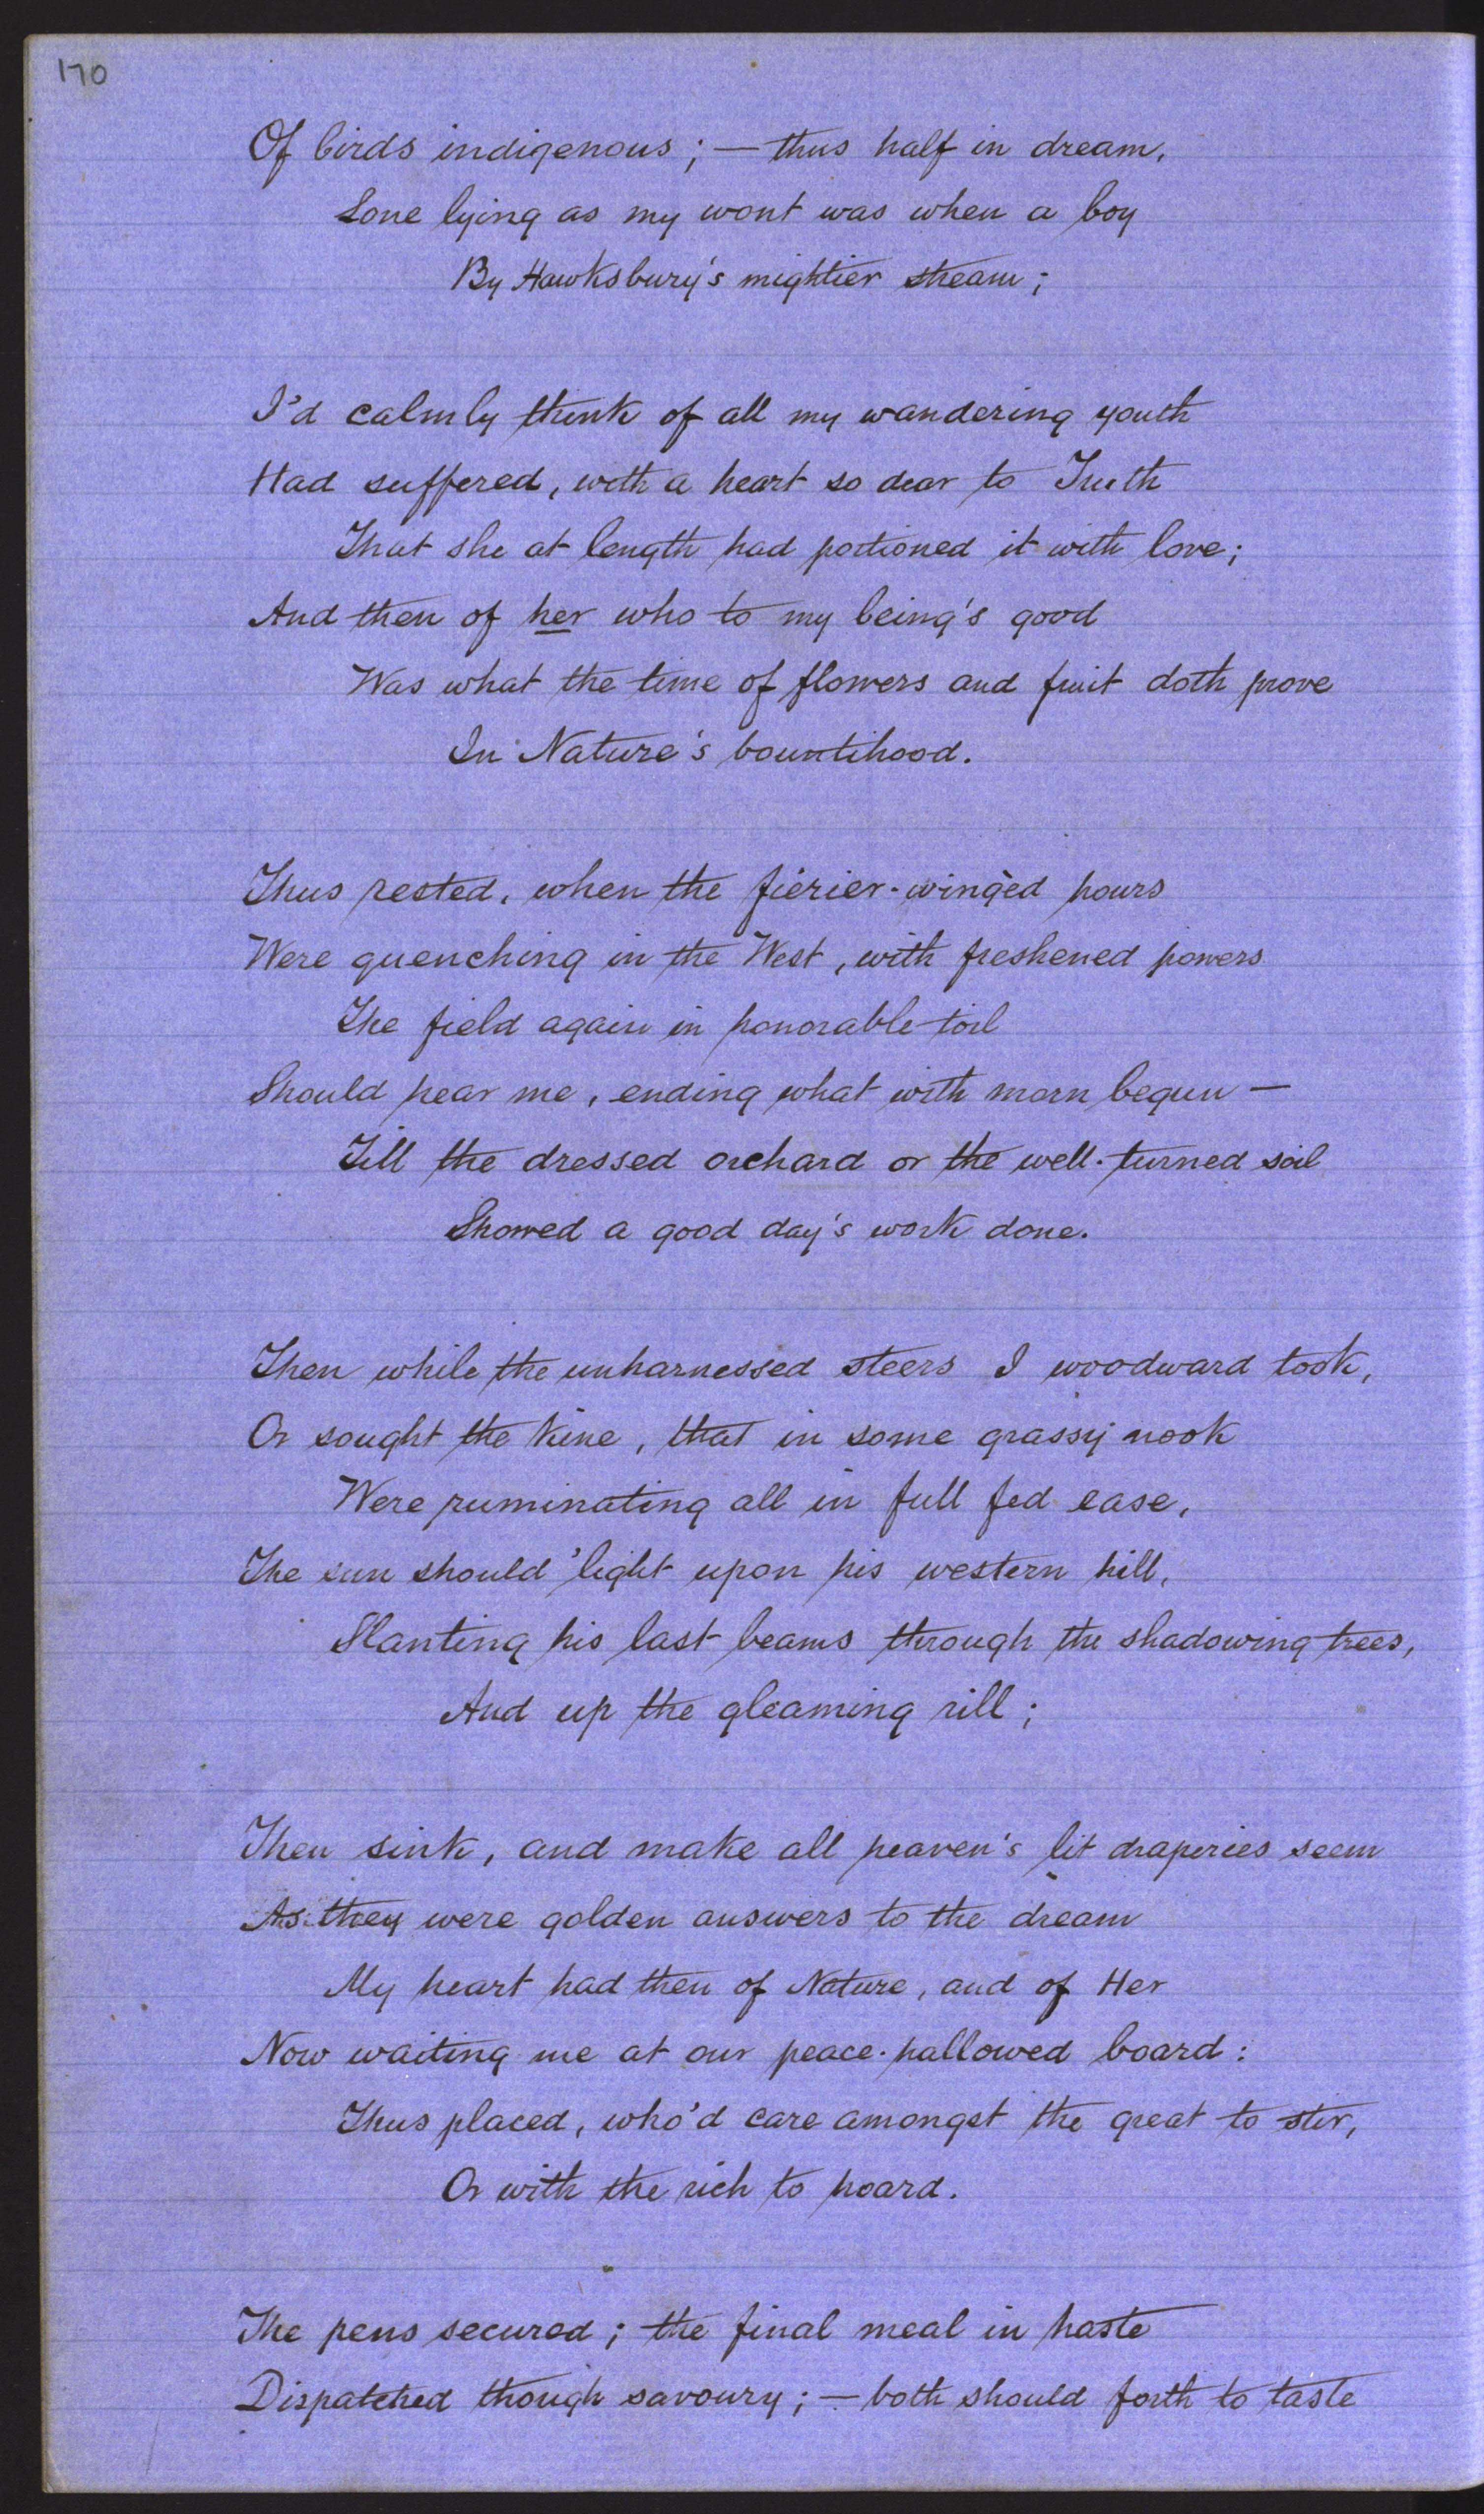 170
Of birds indigenous; — thus half in dream,
Lone lying as my wont was when a boy
By Hawksbury's mightier stream;
I'd calmly think of all my wandering youth
Had suffered, with a heart so dear to Truth
That she at length had portioned it with love;
And then of her who to my being's good
Was what the time of flowers and fruit doth prove
In Nature's bountihood.
Thus rested, when the fierier-wingèd hours
Were quenching in the West, with freshened powers
The field again in honorable toil
Should hear me, ending what with morn begun —
Till the dressed orchard or the well-turned soil
Showed a good day's work done.
Then while the unharnessed steers I woodward took,
Or sought the kine, that in some grassy nook
Were ruminating all in full fed ease,
The sun should 'light upon his western hill,
Slanting his last beams through the shadowing trees,
And up the gleaming rill;
Then sink, and make all heaven's lit draperies seem
As they were golden answers to the dream
My heart had then of Nature, and of Her
Now waiting me at our peace-hallowed board:
Thus placed, who'd care amongst the great to stir,
Or with the rich to hoard.
The pens secured; the final meal in haste
Dispatched though savoury; — both should forth to taste